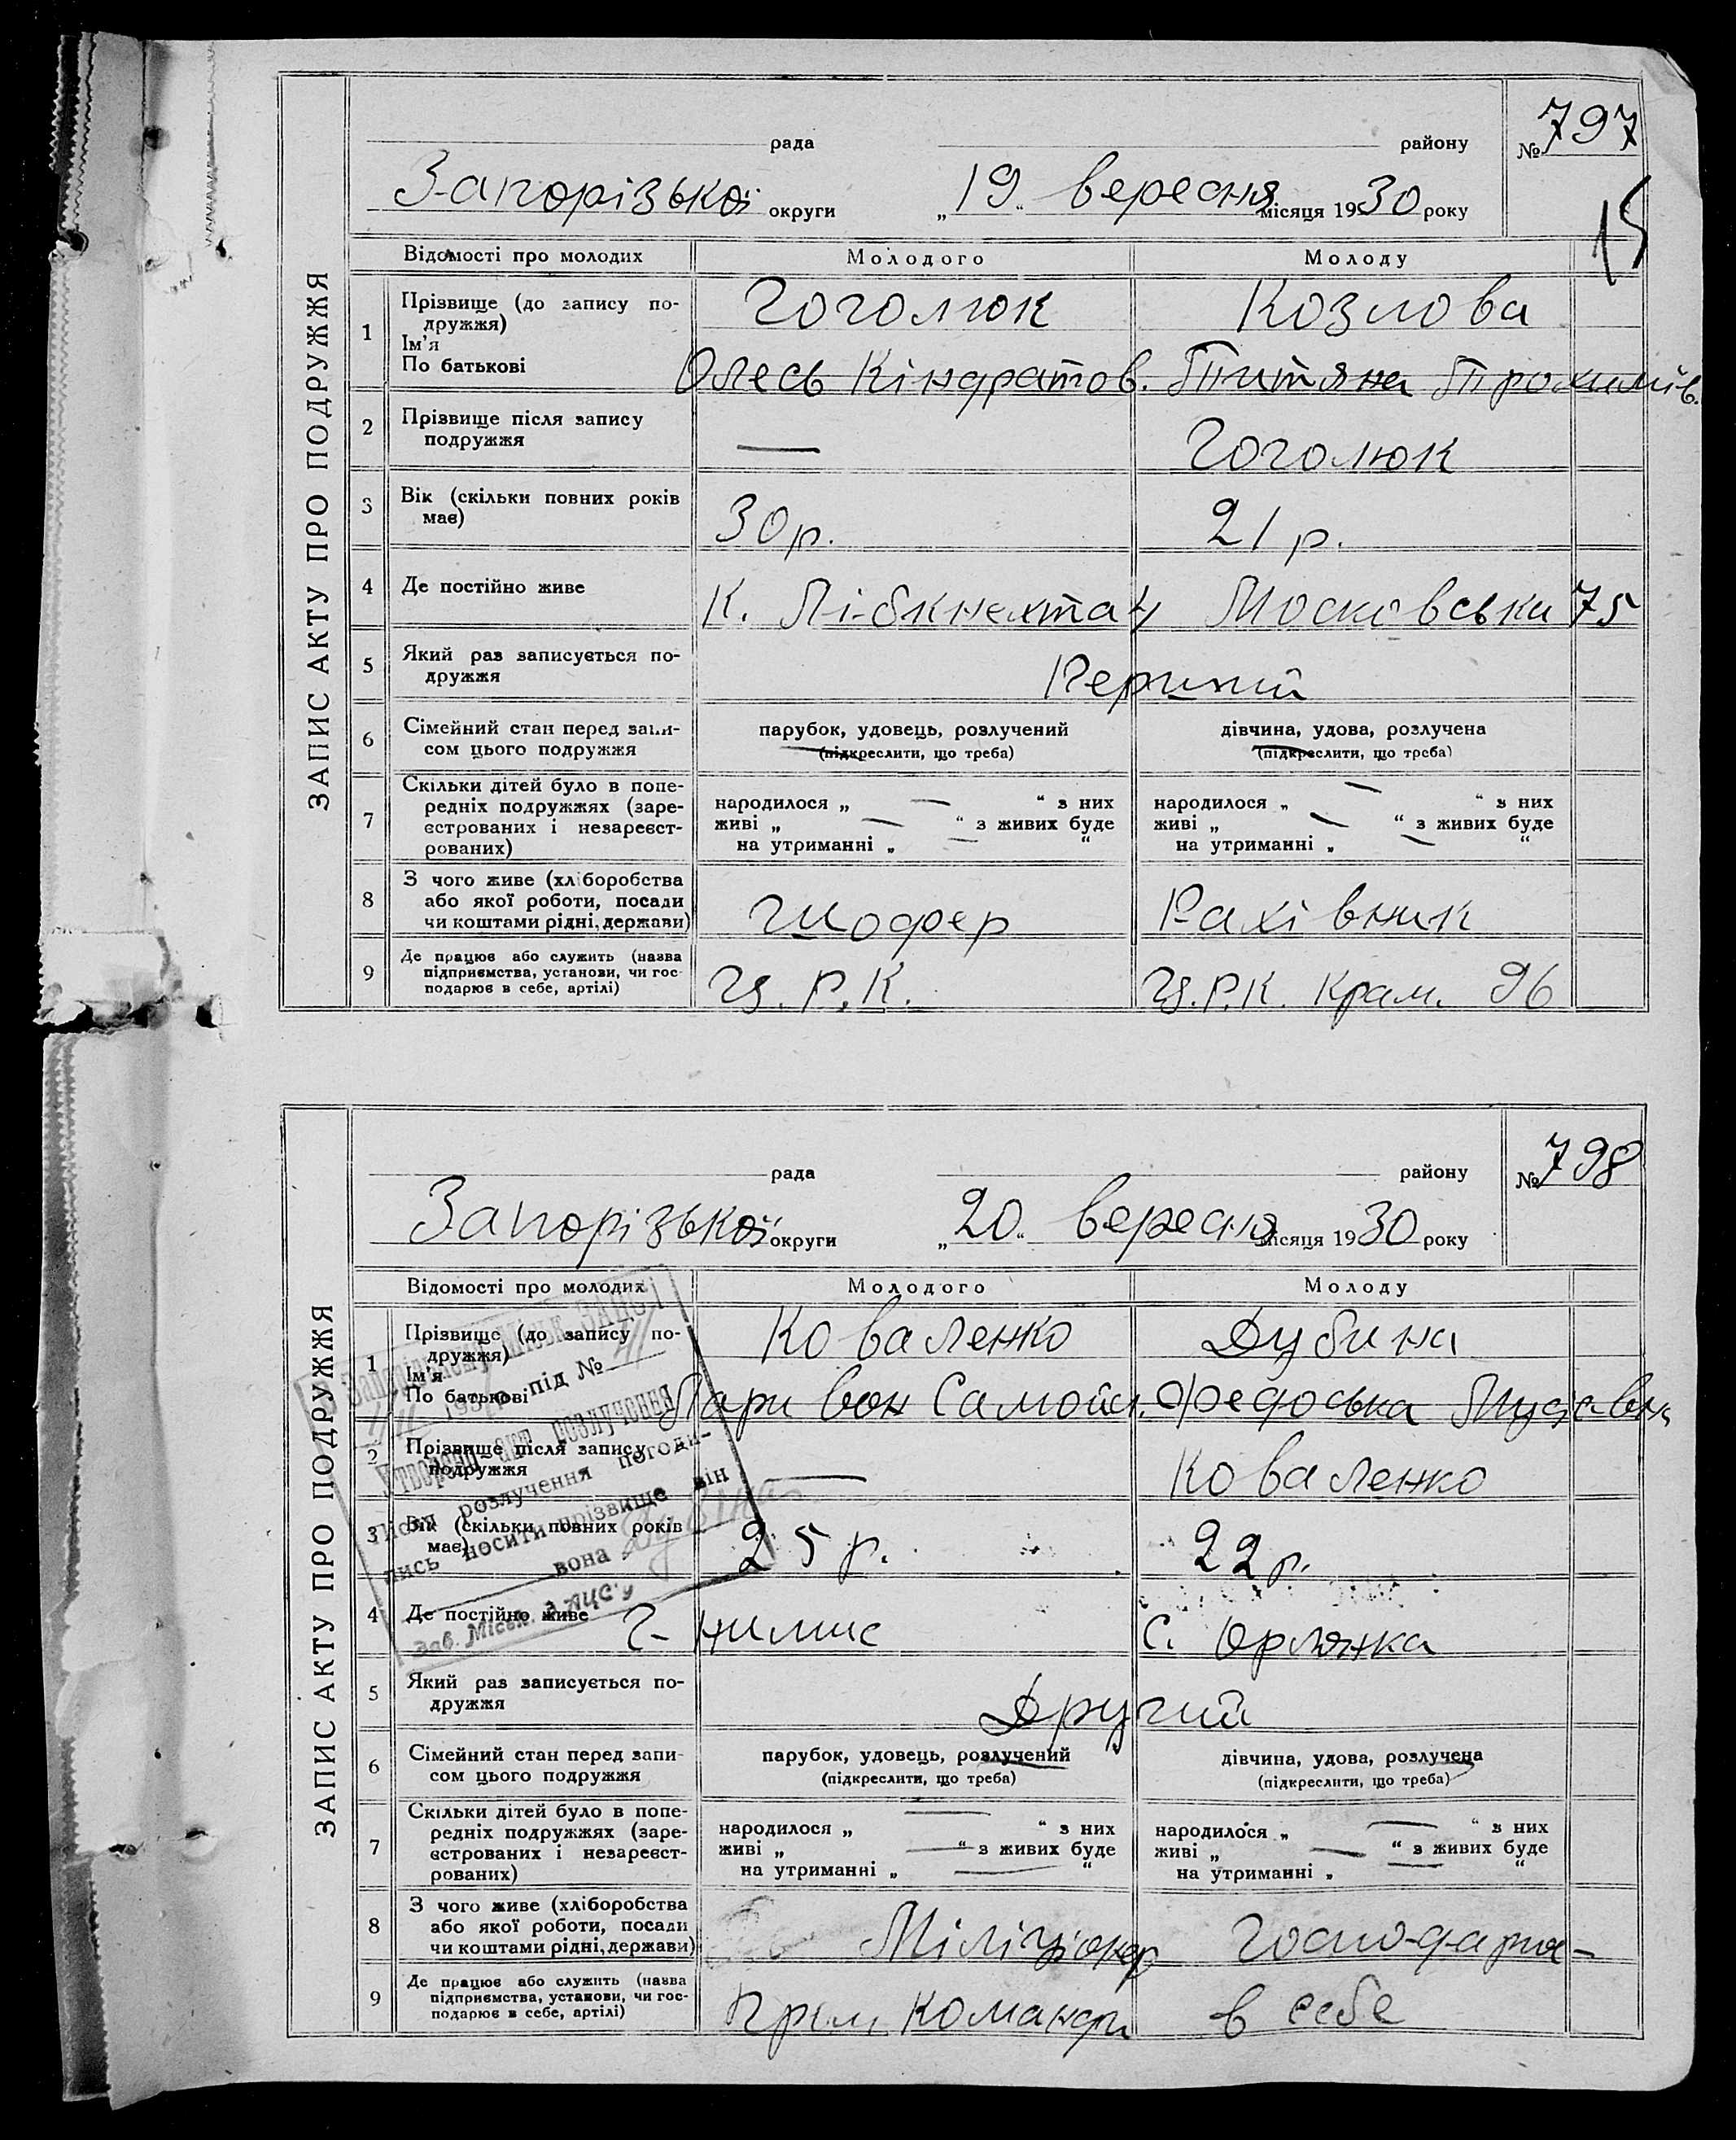 ЗАПИС АКТУ ПРО ПОДРУЖЖЯ
рада району № 797
Запорізької округи „19“ вересня місяця 1930 року
15
Відомості про молодих Молодого Молоду
1 Прізвище (до запису по-
дружжя)
Ім’я
По батькові
Гоголюк Козлова
Олесь Кіндратов. Титяна
2 Прізвище після запису
подружжя
— Гоголюк
3 Вік (скільки повних років
має)
30 р. 21 р.
4 Де постійно живе
К. Лібкнехта 4 Московська 75
5 Який раз записується по-
дружжя
Перший
6 Сімейний стан перед запи-
сом цього подружжя
парубок, удовець, розлучений дівчина, удова, розлучена
(підкреслити, що треба) (підкреслити, що треба)
7 Скільки дітей було в попе-
редніх подружжях (заре-
єстрованих і незареєст-
рованих)
народилося „ — “ з них народилося „ — “ з них
живі „ — “ з живих буде живі „ — “ з живих буде
на утриманні „ — “ на утриманні „ — “
8 З чого живе (хліборобства
або якої роботи, посади
чи коштами рідні, держави)
Шофер Рахівник
9 Де працює або служить (назва
підприємства, установи, чи гос-
подарює в себе, артілі)
Ц.Р.К. Ц.Р.К. Крам. 96
ЗАПИС АКТУ ПРО ПОДРУЖЖЯ
рада району № 798
Запорізької округи „20“ вересня місяця 1930 року
Відомості про молодих Молодого Молоду
1 Прізвище (до запису по-
дружжя)
Ім’я
По батькові
Коваленко Дубина
Ларивон Самойл. Федоська
2 Прізвище після запису
подружжя
— Коваленко
3 Вік (скільки повних років
має)
25 р. 22 р.
4 Де постійно живе
с. Орлянка
5 Який раз записується по-
дружжя
Другий
6 Сімейний стан перед запи-
сом цього подружжя
парубок, удовець, розлучений дівчина, удова, розлучена
(підкреслити, що треба) (підкреслити, що треба)
7 Скільки дітей було в попе-
редніх подружжях (заре-
єстрованих і незареєст-
рованих)
народилося „ — “ з них народилося „ — “ з них
живі „ — “ з живих буде живі „ — “ з живих буде
на утриманні „ — “ на утриманні „ — “
8 З чого живе (хліборобства
або якої роботи, посади
чи коштами рідні, держави)
Міліціонер Господарює
9 Де працює або служить (назва
підприємства, установи, чи гос-
подарює в себе, артілі)
команди в себе
В Запорізькому Міськ ЗАГС'і
під №
Утворено акт розлучення
Після розлучення погоди-
лись носити прізвище він
вона Дубина
Зав. Міськ. ЗАГС'у